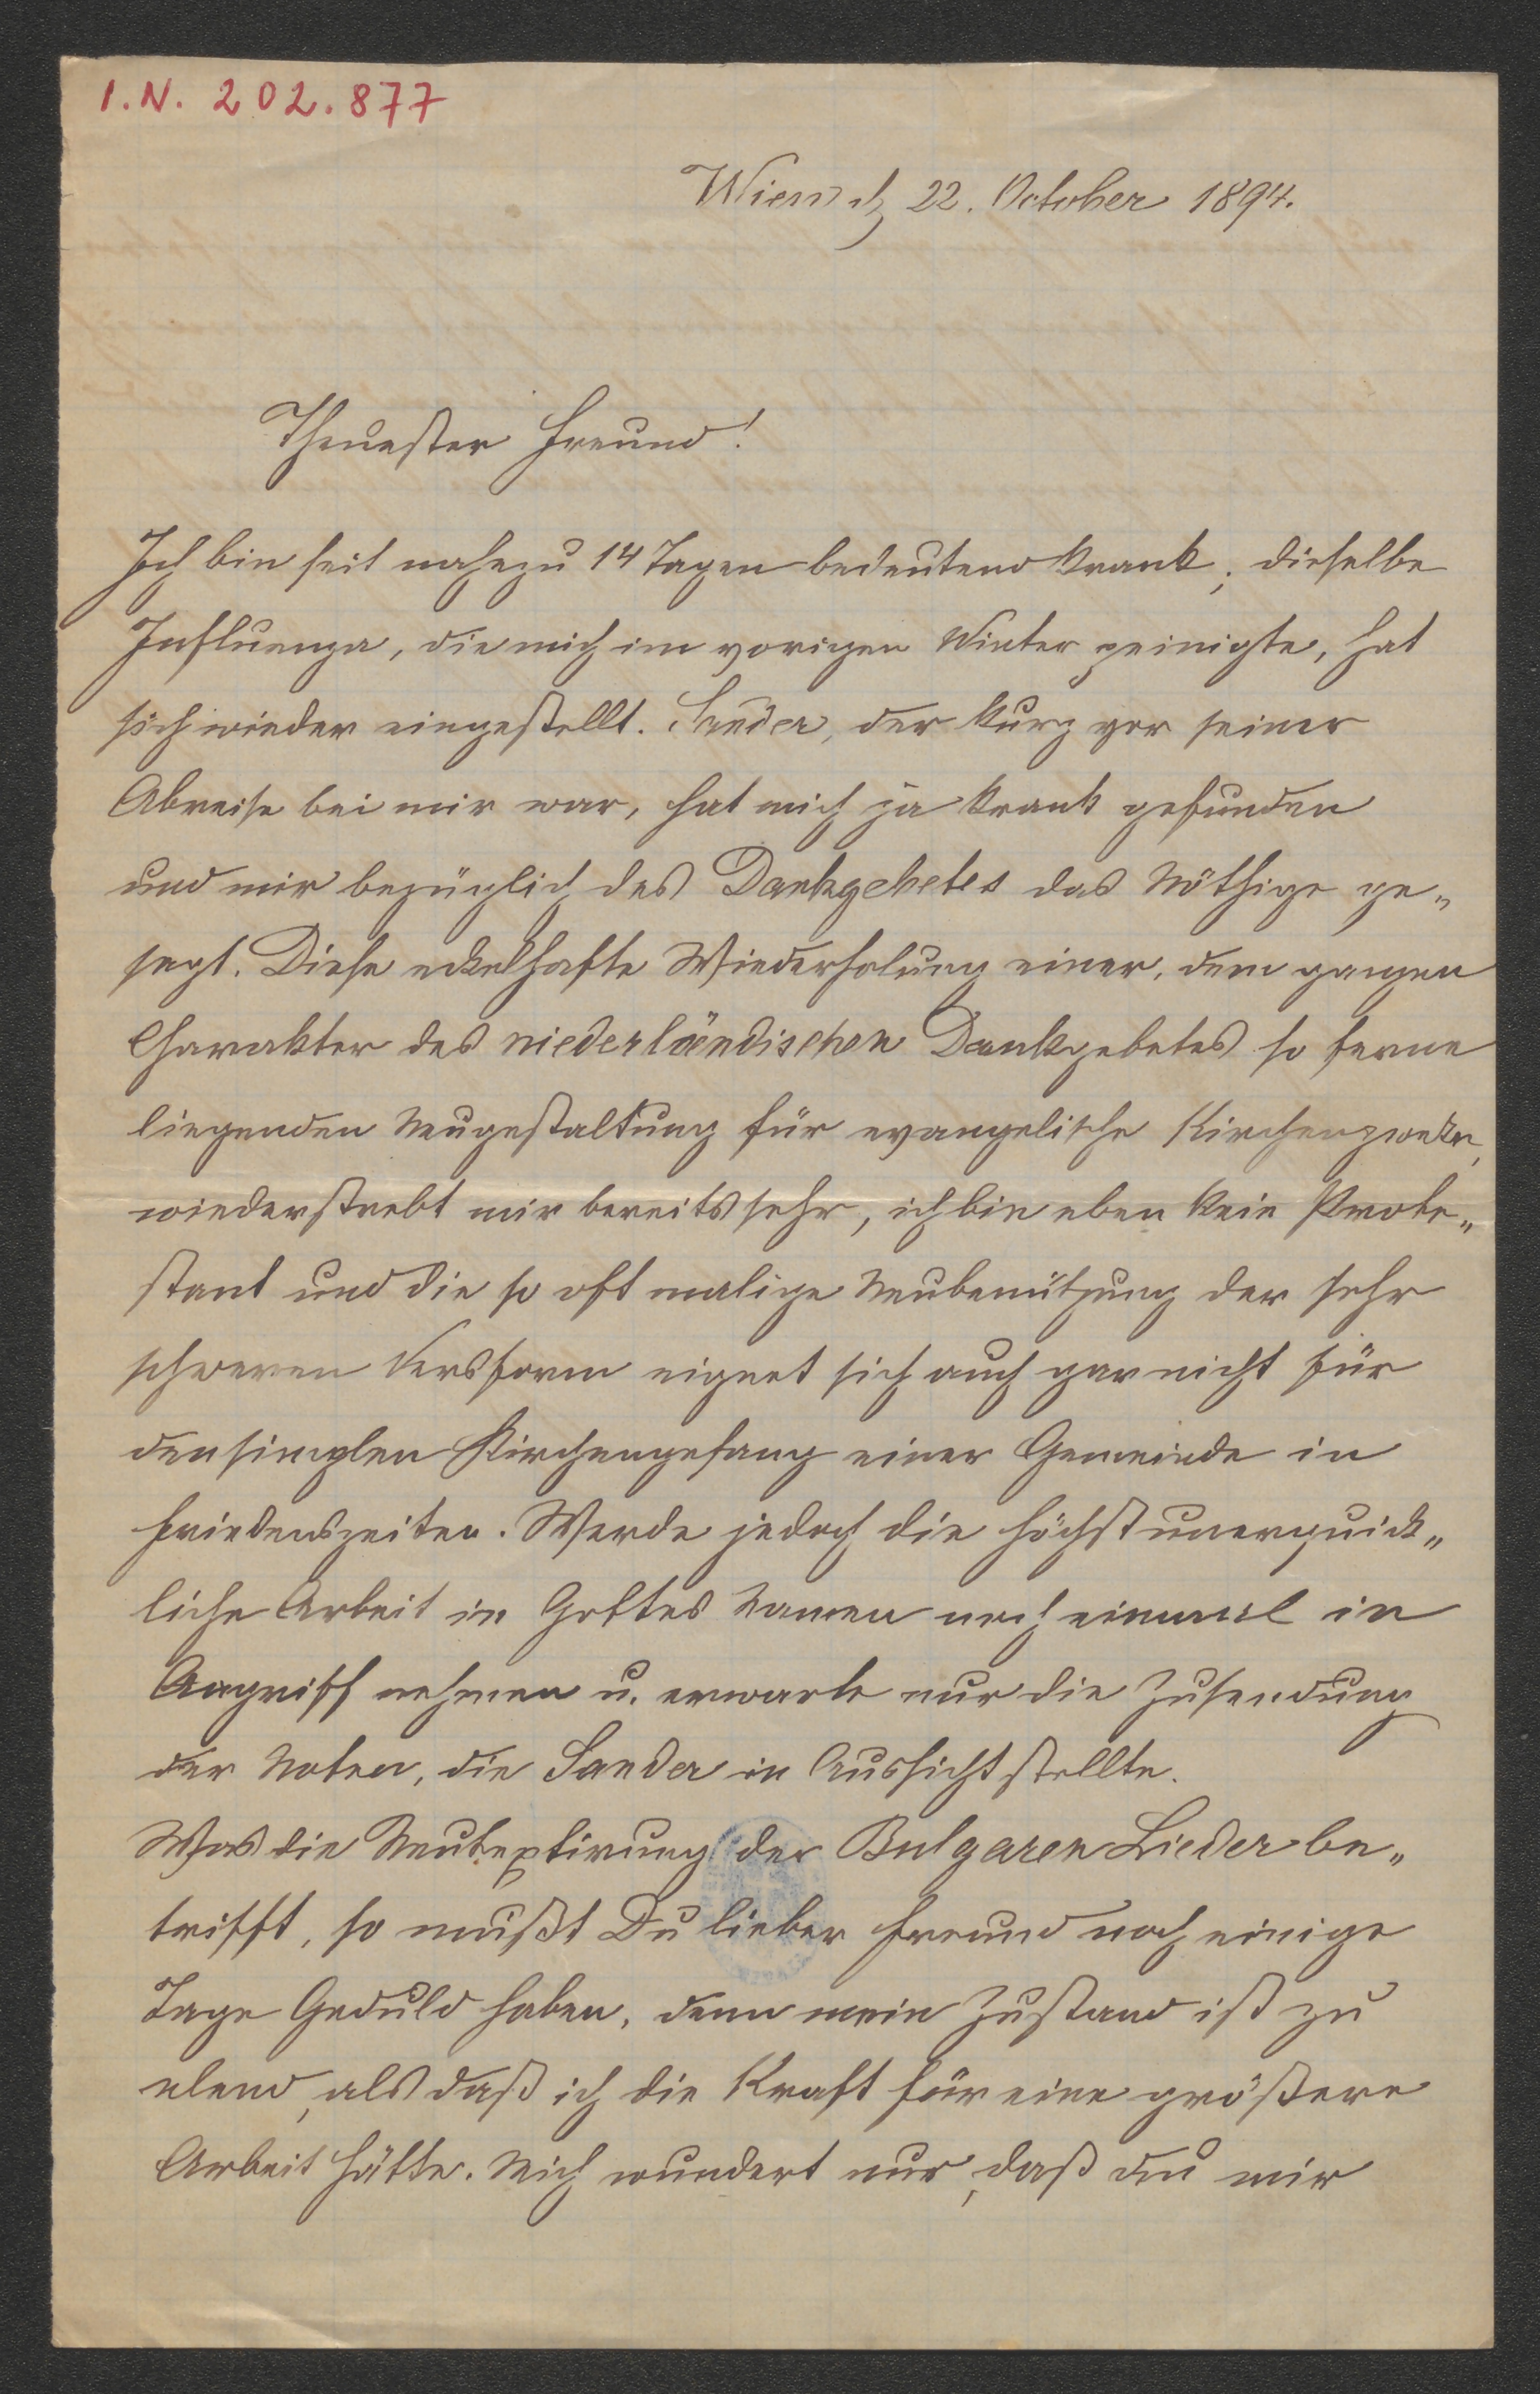 I.N. 202.877
Wien d. 22. October 1894.
Theuester Freund!
Ich bin seit nahezu 14 Tagen bedeutend krank; dieselbe
Influenza, die mich im vorigen Winter peinigte, hat
sich wieder eingestellt. Sander, der kurz vor seiner
Abreise bei mir war, hat mich ja krank gefunden
und mir bezüglich des Dankgebetes das Nöthige ge„
sagt. Diese eckelhafte Wiederholung einer, dem ganzen
Charakter des niederländischen Dankgebetes so ferne
liegenden Neugestaltung für evangelische Kirchenzwecke,
wiederstrebt mir bereits sehr, ich bin eben kein Prote„
stant und die so oft malige Neubenützung der sehr
schweren Versform eignet sich auch gar nicht für
den simplen Kirchengesang einer Gemeinde in
Friedenszeiten. Werde jedoch die höchst unerquick„
liche Arbeit in Gottes Namen noch einmal in
Angriff nehmen u. erwarte nur die Zusendung
der Noten, die Sander in Aussicht stellte.
Was die Neutextirung der Bulgaren Lieder be„
trifft, so mußt Du lieber Freund noch einige
Tage Geduld haben, denn mein Zustand ist zu
elend, als daß ich die Kraft für eine größere
Arbeit hätte. Mich wundert nur, daß du mir